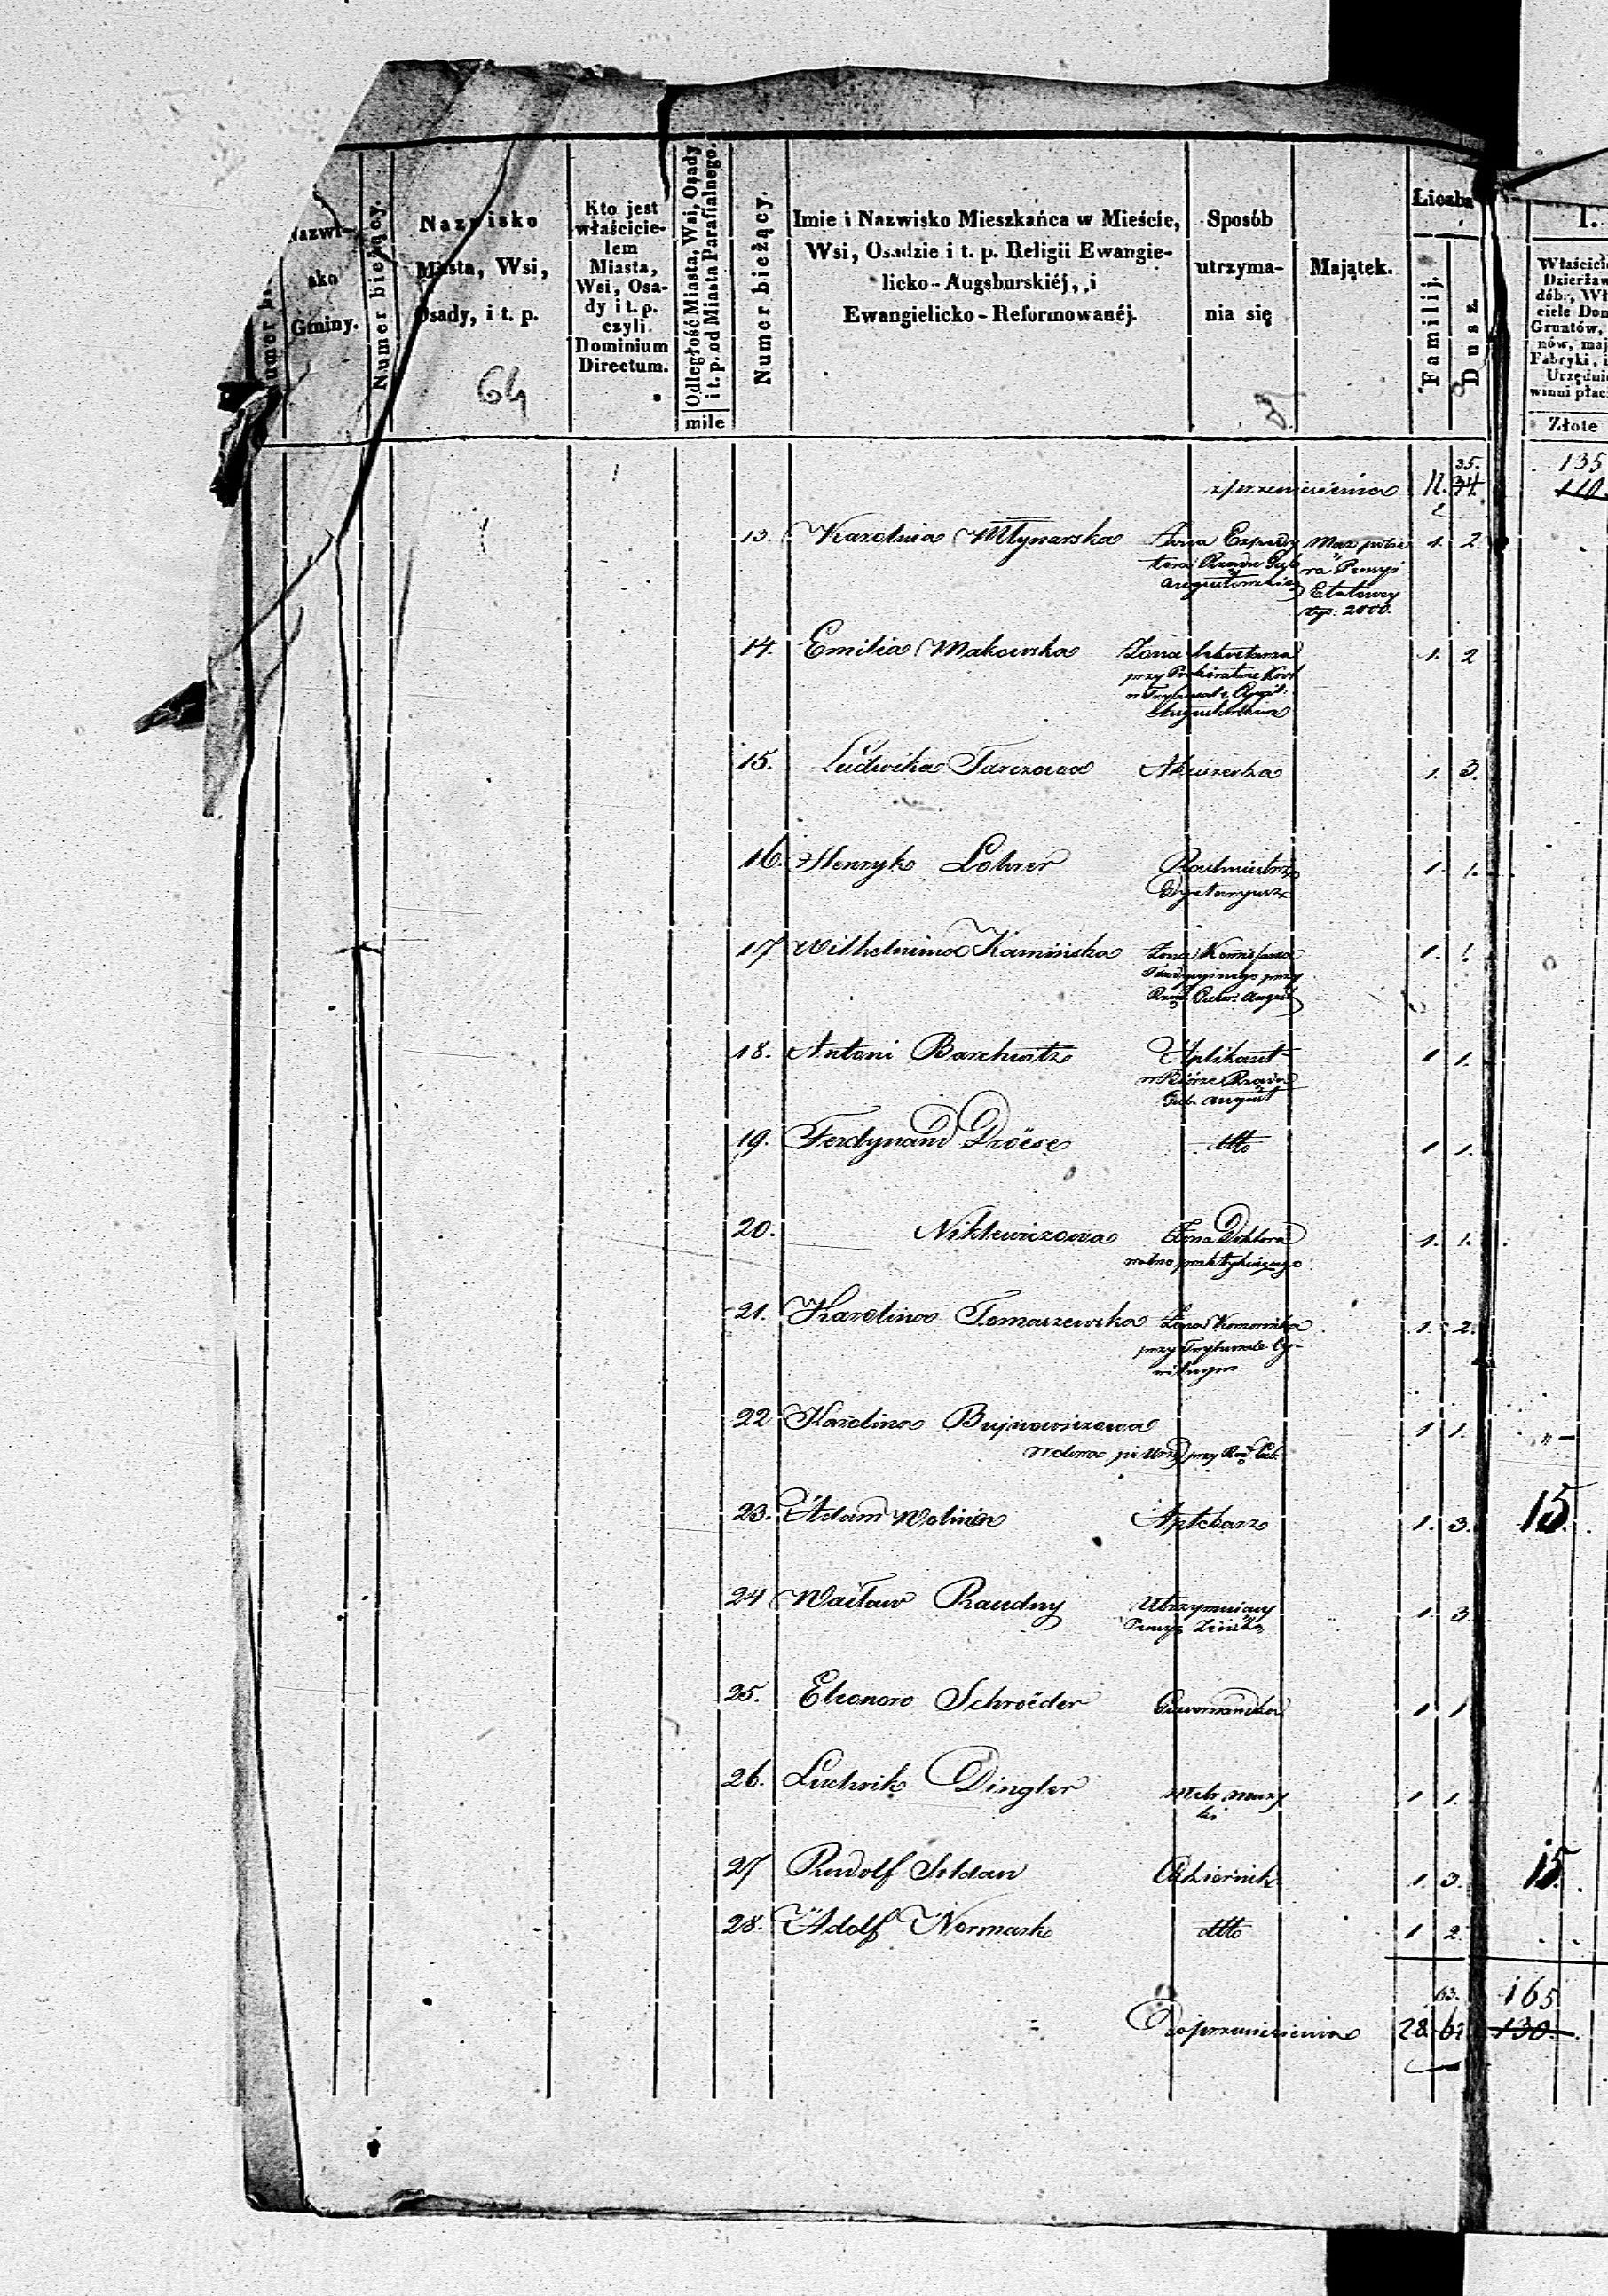 Nazwi-
sko
Gminy.
Numer bieżący.
Nazwisko
Miasta, Wsi,
Osady, i t. p.
64
Kto jest
właścicie-
lem
Miasta,
Wsi, Osa-
dy i t. p.
czyli
Dominium
Directum.
Odległość Miasta, Wsi, Osady
i t. p. od Miasta Parafialnego.
mile
Numer bieżący.
Imie i Nazwisko Mieszkańca w Mieście,
Wsi, Osadzie i t. p. Religii Ewangie-
licko-Augsburskiéj, i
Ewangielicko-Reformowanéj.
Sposób
utrzyma-
nia się
Majątek.
Liczba
Familij.
Dusz.
I.
Właścicie
Dzierżaw
dóbr, Wł
ciele Dom
Gruntów,
nów, maj
Fabryki, i
Urzędni
winni płac
Złote
z przeniesienia 12. 35. 34. 135 110
13. Karolina Młynarska Żona Expedy Mąż pobie 1. 2.
tora Rządu Gub ra Pensyi
Augustowskiego Etatowey
złp: 2000.
14. Emilia Makowska Żona Sekretarza 1. 2
przy Prokuratorze
w Trybunale Cywil:
Augustowskim
15. Ludwika Tarczowa Akuszerka 1. 3.
16. Henryk Lohrer Rachmistrz 1. 1.
Dyetaryusz
17 Wilhelmina Kamińska Żona Kommissarza 1. 1.
przy
Rząd. Guber. August
18. Antoni Barchwitz Aplikant 1 1.
w Biórze Rządu
Gub. August
19. Ferdynand Dröese dtto 1 1.
20. Niklewiczowa Żona Doktora 1. 1.
wolno praktykującego
21. Karolina Tomaszewska Żona Komornika 1. 2.
przy Trybunale Cy-
wilnym
22 Karolina Bujnowiczowa 1 1. " -
Wdowa po Urzęd przy Rząd Gub.
23. Adam Wolinin Aptekarz 1. 3. 15.
24 Wacław Raudny Utrzymuiący 1. 3.
25. Eleonora Schroëder Guwernantka 1 1
26. Ludwik Dingler Metr muzy 1 1.
ki
27 Rudolf Soldan Cukiernik 1. 3. 15.
28. Adolf Normark dtto 1 2.
63. 165
Do przeniesienia 28. 62 130.